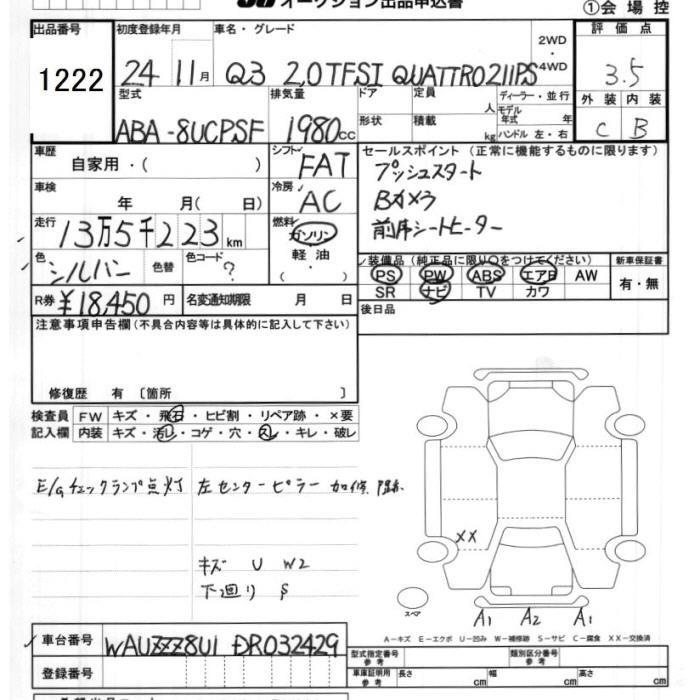 オークション出品申込書
①会場控
出品番号 初度登録年月 車名・グレード 2WD・4WD 評価点
1222 24 11月 Q3 2.0TFSI QUATTRO211PS 3.5
型式 排気量 ドア 定員 人 ディーラー・並行 外装 内装
ABA-8UCPSF 1980cc 形状 積載 kg モデル年式 年 ハンドル 左・右 C B
車歴 自家用・( ) シフト FAT セールスポイント (正常に機能するものに限ります)
プッシュスタート
車検 年 月( 日) 冷房 AC Bカメラ
走行 13万5千223km 燃料 ガソリン 軽油 ・( ) 前席シートヒーター
色 シルバー 色替 色コード ? 装備品 (純正品に限り○をつけてください) 新車保証書
PS PW ABS エアB AW 有・無
SR ナビ TV カワ
R券 ¥18,450円 名変通知期限 月 日 後日品
注意事項申告欄 (不具合内容等は具体的に記入して下さい)
修復歴 有 〔箇所 〕
検査員 FW キズ・飛石・ヒビ割・リペア跡・×要
記入欄 内装 キズ・汚れ・コゲ・穴・スレ・キレ・破レ
E/Gチェックランプ点灯 左センターピラー
キズ U W2
下廻り S
XX
スペア A1 A2 A1
A-キズ E-エクボ U-凹み W-補修跡 S-サビ C-腐食 XX-交換済
車台番号 WAUZZZ8U1 DR032429 型式指定番号 参考 類別区分番号 参考
登録番号 車庫証明用 参考 長さ cm 幅 cm 高さ cm